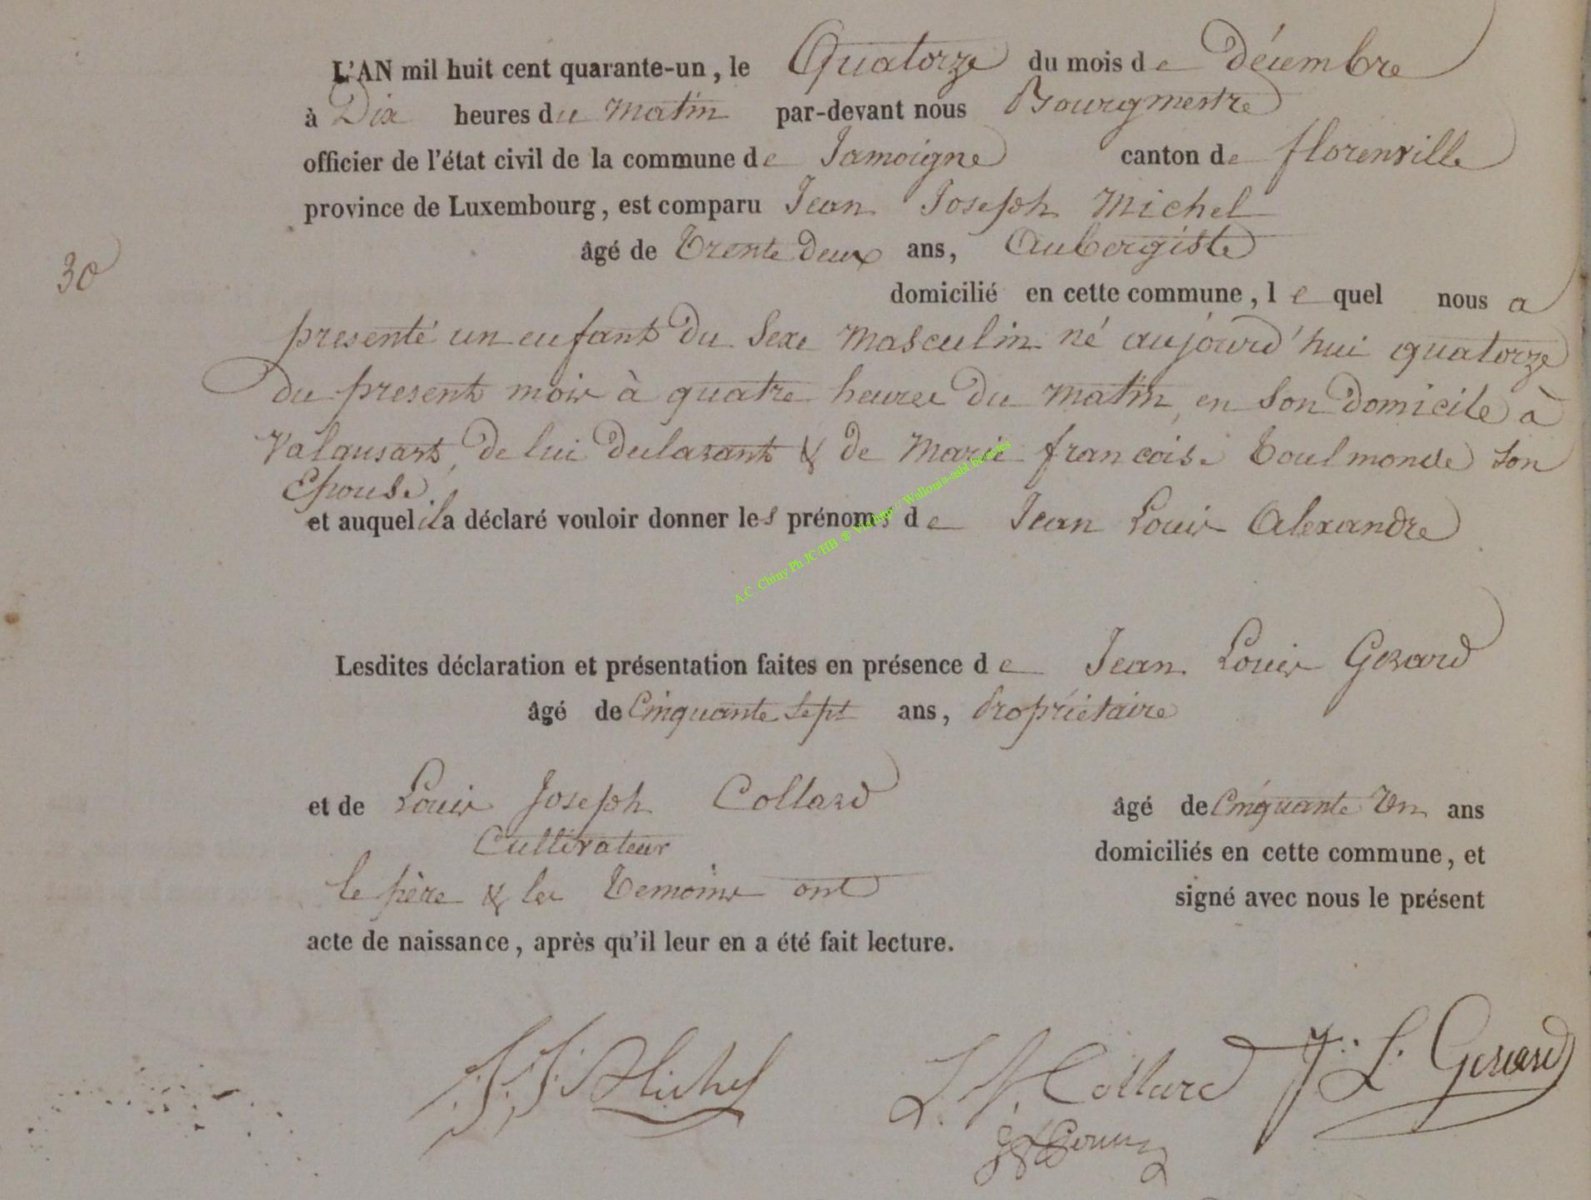 L'AN mil huit cent quarante-un, le Quatorze du mois de décembre
à Dix heures du matin par-devant nous Bourgmestre
officier de l'état civil de la commune de Jamoigne canton de florenville
province de Luxembourg, est comparu Jean Joseph Michel
âgé de Trente Deux ans, Aubergiste
30
domicilié en cette commune, le quel nous a
presenté un enfant Du Sexe Masculin né aujourd'hui quatorze
Du present mois à quatre heures Du matin, en Son Domicile à
Valansart, De lui Declarant & de Marie francoise Toulmonde Son
Epouse
et auquel il a déclaré vouloir donner les prénoms de Jean Louis Alexandre
A.C. Chiny Ph JC/HB ©
Lesdites déclaration et présentation faites en présence de Jean Louis Gerard
âgé de Cinquante Sept ans, Propriétaire
et de Louis Joseph Collard âgé de Cinquante Un ans
Cultivateur domiciliés en cette commune, et
le père & les Temoins ont signé avec nous le présent
acte de naissance, après qu'il leur en a été fait lecture.
J. J. Michel L. J. Collard J. L. Gerard